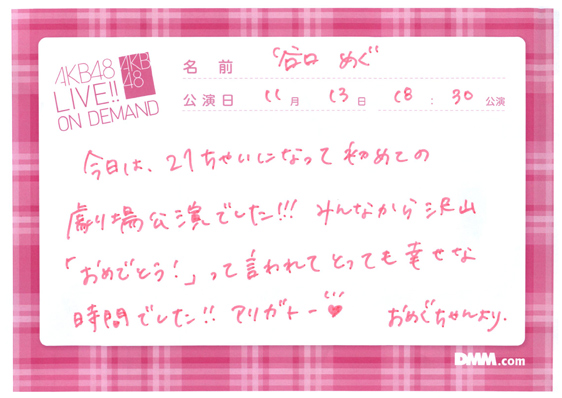 AKB48
LIVE!!
ON DEMAND
AKB
48
名前 谷口 めぐ
公演日 11月 13日 18:30 公演
今日は、27ちゃいになって初めての
劇場公演でした!!! みんなから沢山
「おめでとう!」って言われてとっても幸せな
時間でした!! アリガトー♥ おめぐちゃんより.
DMM.com